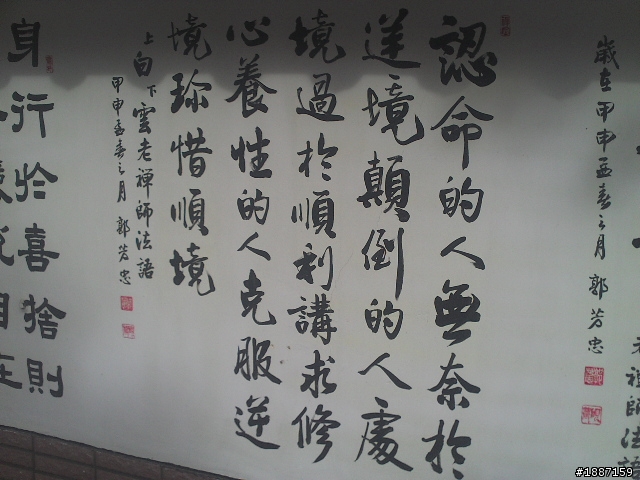 老禪師法語
歲在甲申孟春之月 郭芳忠
認命的人無奈於
逆境顛倒的人處
境過於順利講求修
心養性的人克服逆
境珍惜順境
上白下雲老禪師法語
甲申孟春之月 郭芳忠
身行於喜捨則
自在
#1887159